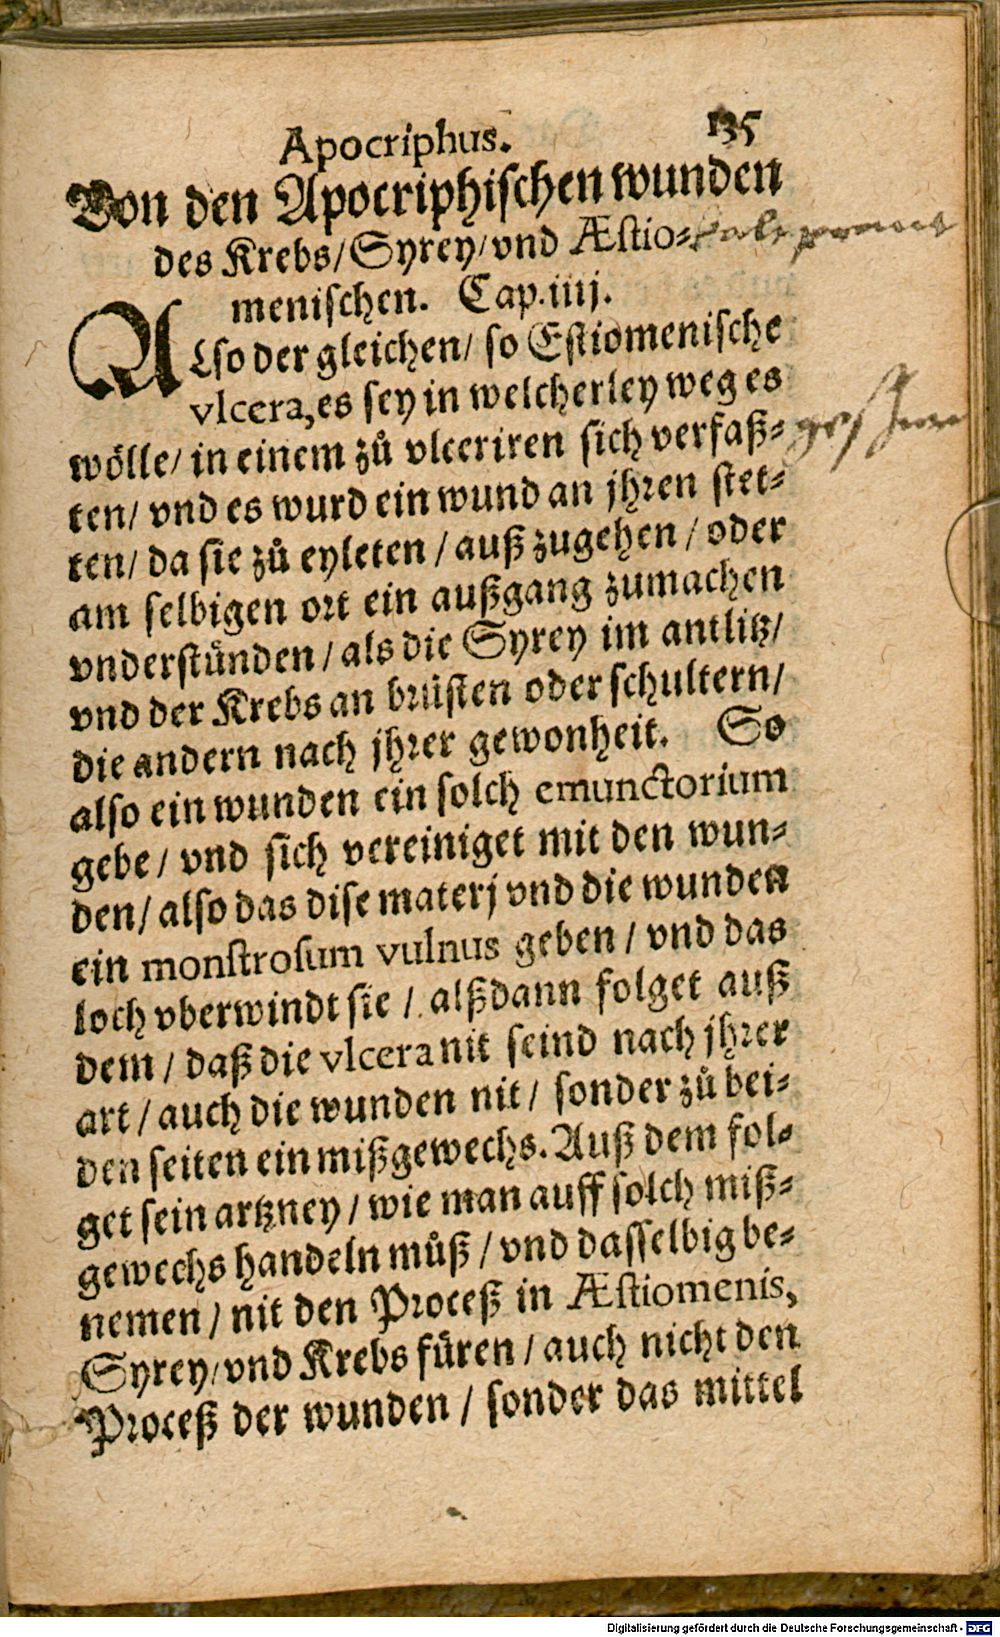 Apocriphus. 135
Von den Apocriphischen wunden
des Krebs/ Syrey/ vnd Æstio-
menischen. Cap. iiij.
ALso der gleichen/ so Estiomenische
vlcera, es sey in welcherley weg es
wölle/ in einem zů vlceriren sich verfaß-
ten/ vnd es wurd ein wund an jhren stet-
ten/ da sie zů eyleten / auß zugehen / oder
am selbigen ort ein außgang zumachen
vnderstünden / als die Syrey im antlitz/
vnd der Krebs an brüsten oder schultern/
die andern nach jhrer gewonheit. So
also ein wunden ein solch emunctorium
gebe / vnd sich vereiniget mit den wun-
den/ also das dise materj vnd die wunden
ein monstrosum vulnus geben / vnd das
loch vberwindt sie / alßdann folget auß
dem / daß die vlcera nit seind nach jhrer
art / auch die wunden nit / sonder zů bei-
den seiten ein mißgewechs. Auß dem fol-
get sein artzney / wie man auff solch miß-
gewechs handeln můß / vnd dasselbig be-
nemen / nit den Proceß in Æstiomenis,
Syrey/ vnd Krebs füren / auch nicht den
Proceß der wunden / sonder das mittel
Digitalisierung gefördert durch die Deutsche Forschungsgemeinschaft - DFG